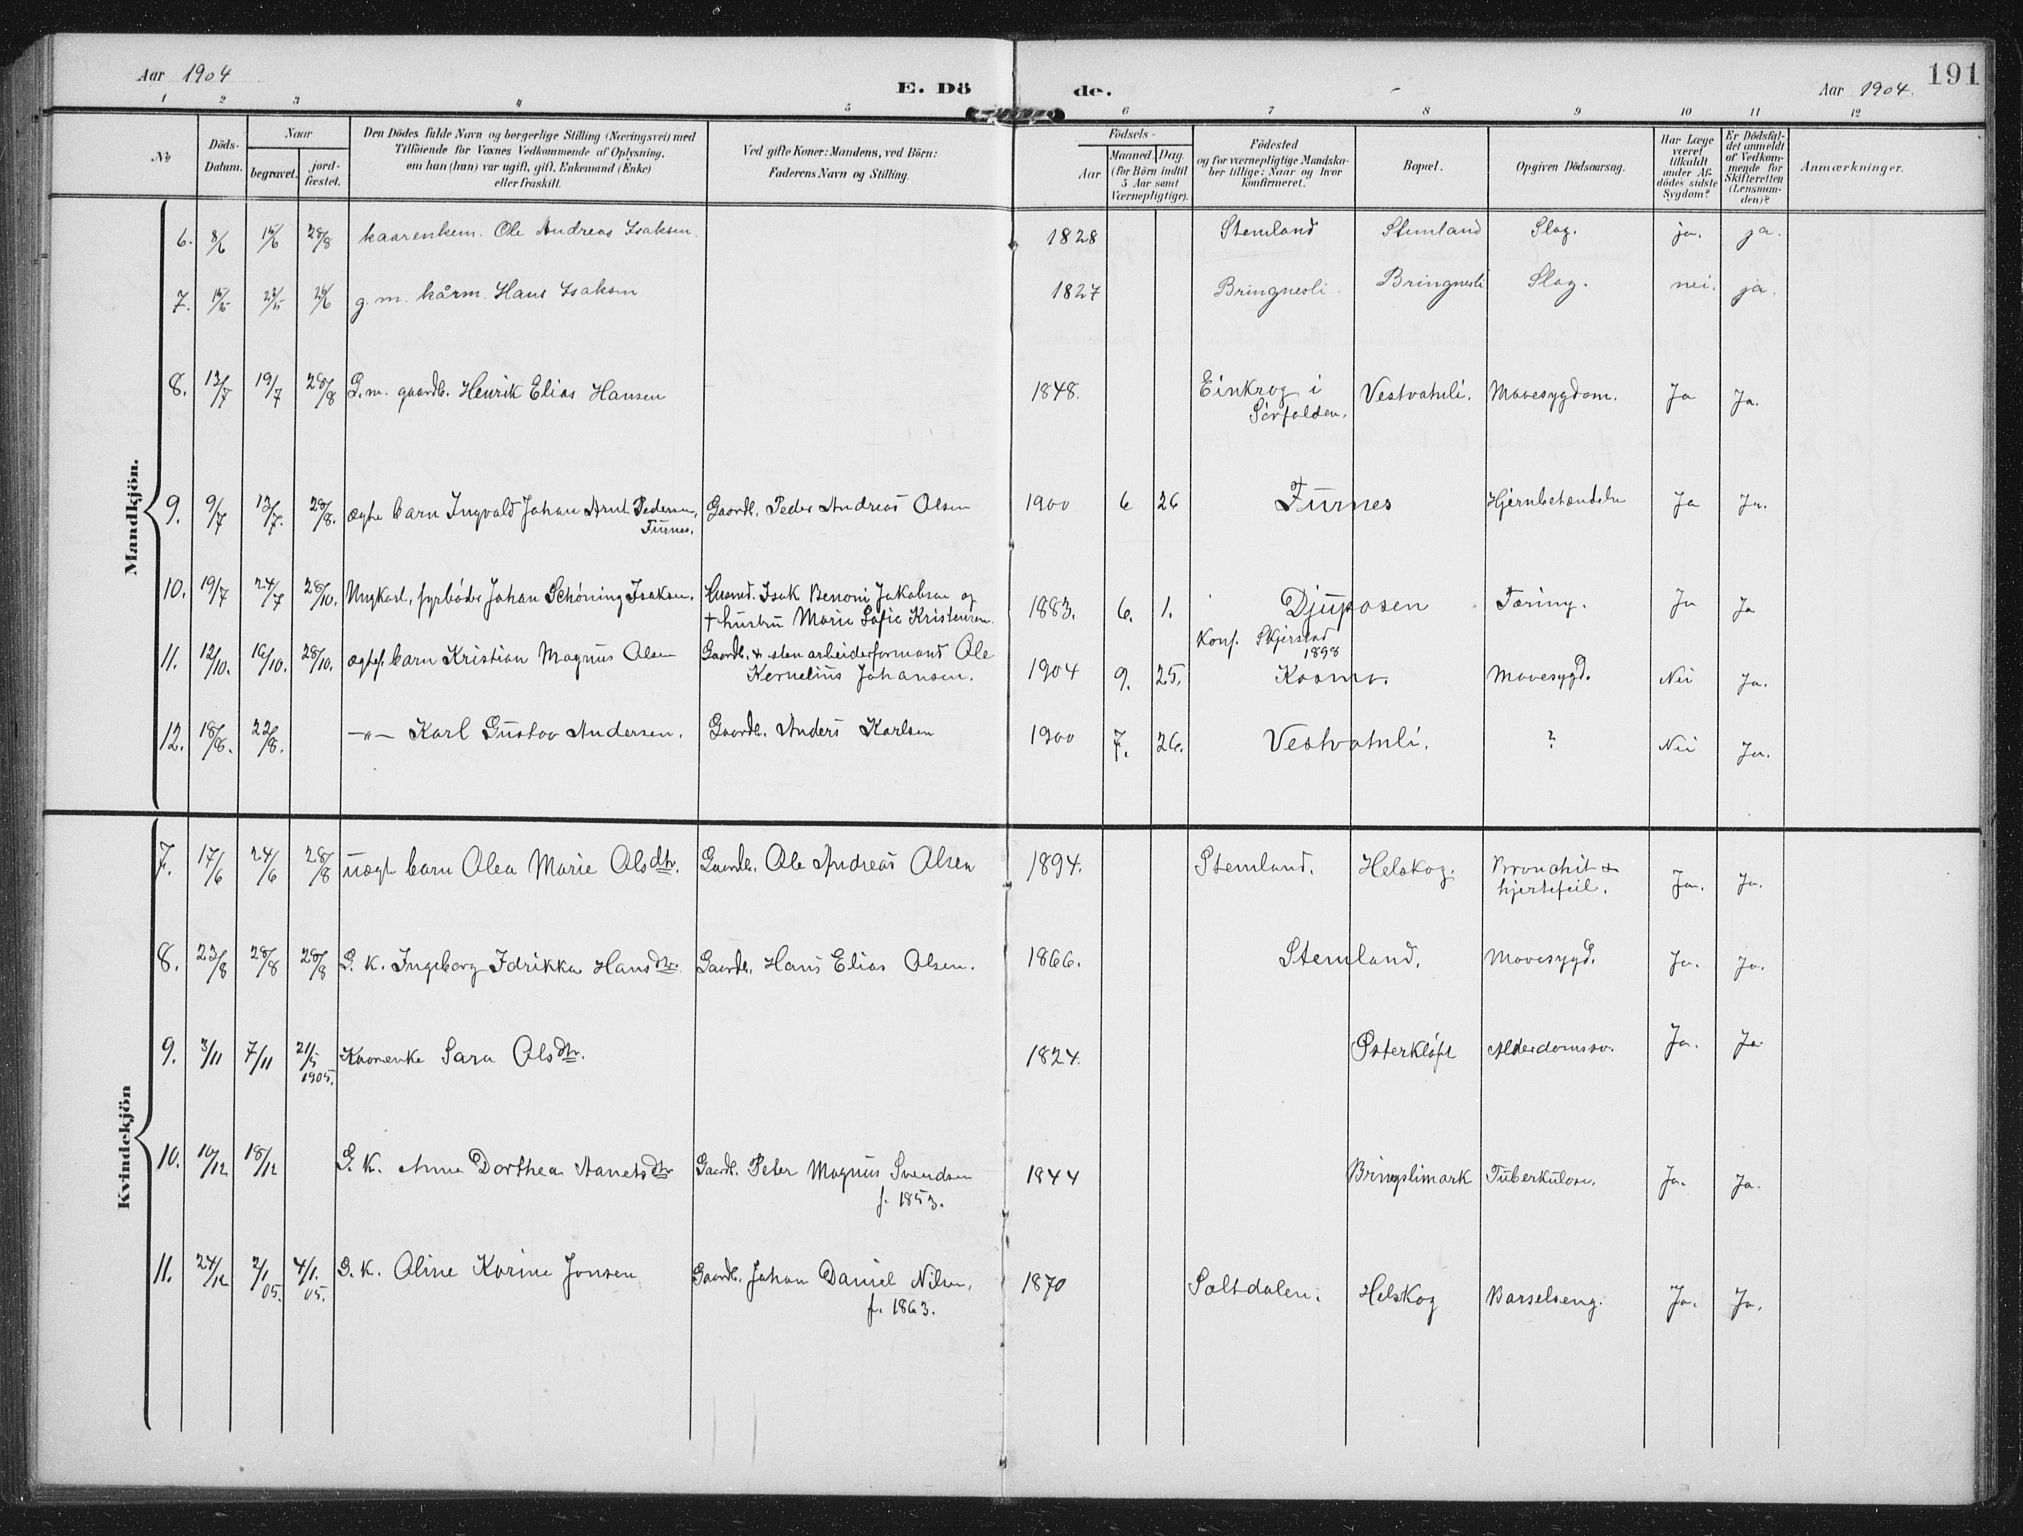 Aar 1904
E. Dö
de.
Aar 1904.
191
1 2 3 4 5 6 7 8 9 10 11 12
№
Döds-
Datum.
Naar
begravet.
jord-
fæstet.
Den Dödes fulde Navn og borgerlige Stilling (Næringsvei) med
Tilföiende for Voxnes Vedkommende af Oplysning,
om han (hun) var ugift, gift, Enkemand (Enke)
eller fraskilt.
Ved gifte Koner: Mandens, ved Börn:
Faderens Navn og Stilling.
Födsels-
Aar
Maaned. Dag.
(for Börn indtil
5 Aar samt
Værnepligtige).
Födested
og for værnepligtige Mandska-
ber tillige: Naar og hvor
Konfirmeret.
Bopæl.
Opgiven Dödsaarsag.
Har Læge
været
tilkaldt
under Af-
dödes sidste
Sygdom?
Er Dödsfal-
det anmeldt
af Vedkom-
mende for
Skifteretten
(Lensman-
den)?
Anmærkninger.
Mandkjön.
6. 8/6 15/6 28/8 kaarenkem. Ole Andreas Isaksen. 1828 Stemland Stemland Slag. ja. ja.
7. g. m. kårm. Hans Isaksen 1827 Bringnesli. Bringnesli Slag. nei. ja.
8. 13/7 19/7 28/8 G. m. gaardb. Henrik Elias Hansen 1848. Einkrog i Vestvatnli. Mavesygdom. Ja Ja.
Sörfolden.
9. 9/7 13/7. 28/8. ægte barn Ingvald Johan Arnt Pedersen, Gaardb. Peder Andreas Olsen 1900 6 26 Furnes Hjernbetændelse Ja Ja.
Furnes.
10. 19/7 24/7 28/10. Ungkarl, fyrbøder Johan Schöning Isaksen. Husmd. Isak Benoni Jakobsen og 1883. 6. 1. Djuposen Tæring. Ja Ja
+ hustru Marie Sofie Kristensen. Konf. Skjerstad
1898
11. 12/10. 16/10. 28/10. ægtef. barn Kristian Magnus Olsen Gaardb. & stenarbeiderformand Ole 1904 9. 25. Kosmo. Mavesygd. Nei Ja.
Kornelius Johansen.
12. 18/8. 22/8. —"— Karl Gustav Andersen. Gaardb. Anders Karlsen 1900 7. 26. Vestvatnli. ? Nei Ja.
Kvindekjön
7. 17/6 24/6 28/8 uægt barn Olea Marie Olsdtr. Gaardb. Ole Andreas Olsen 1894. Stemland. Helskog. Bronchit &
hjertefeil. Ja. Ja.
8. 23/8 28/8 28/8 G. K. Ingeborg Fdrikka Hansdtr. Gaardb. Hans Elias Olsen. 1866. Stemland. Mavesygd. Ja. Ja.
9. 3/11 7/11 21/5 Kaarenke Sara Olsdtr. 1824. Østerkløft Alderdomssv. Ja. Ja
1905.
10. 10/12 18/12 G. K. Anne Dorthea Aanetsdtr Gaardb. Peter Magnus Svendsen 1844 Bringslimark Tuberkulose. Ja. Ja.
f. 1853.
11. 24/12 2/1 05. 4/1. 05. G. K. Oline Karine Jonsen Gaardb. Johan Daniel Nilsen, 1870 Saltdalen. Helskog Barselseng. Ja. Ja.
f. 1863.